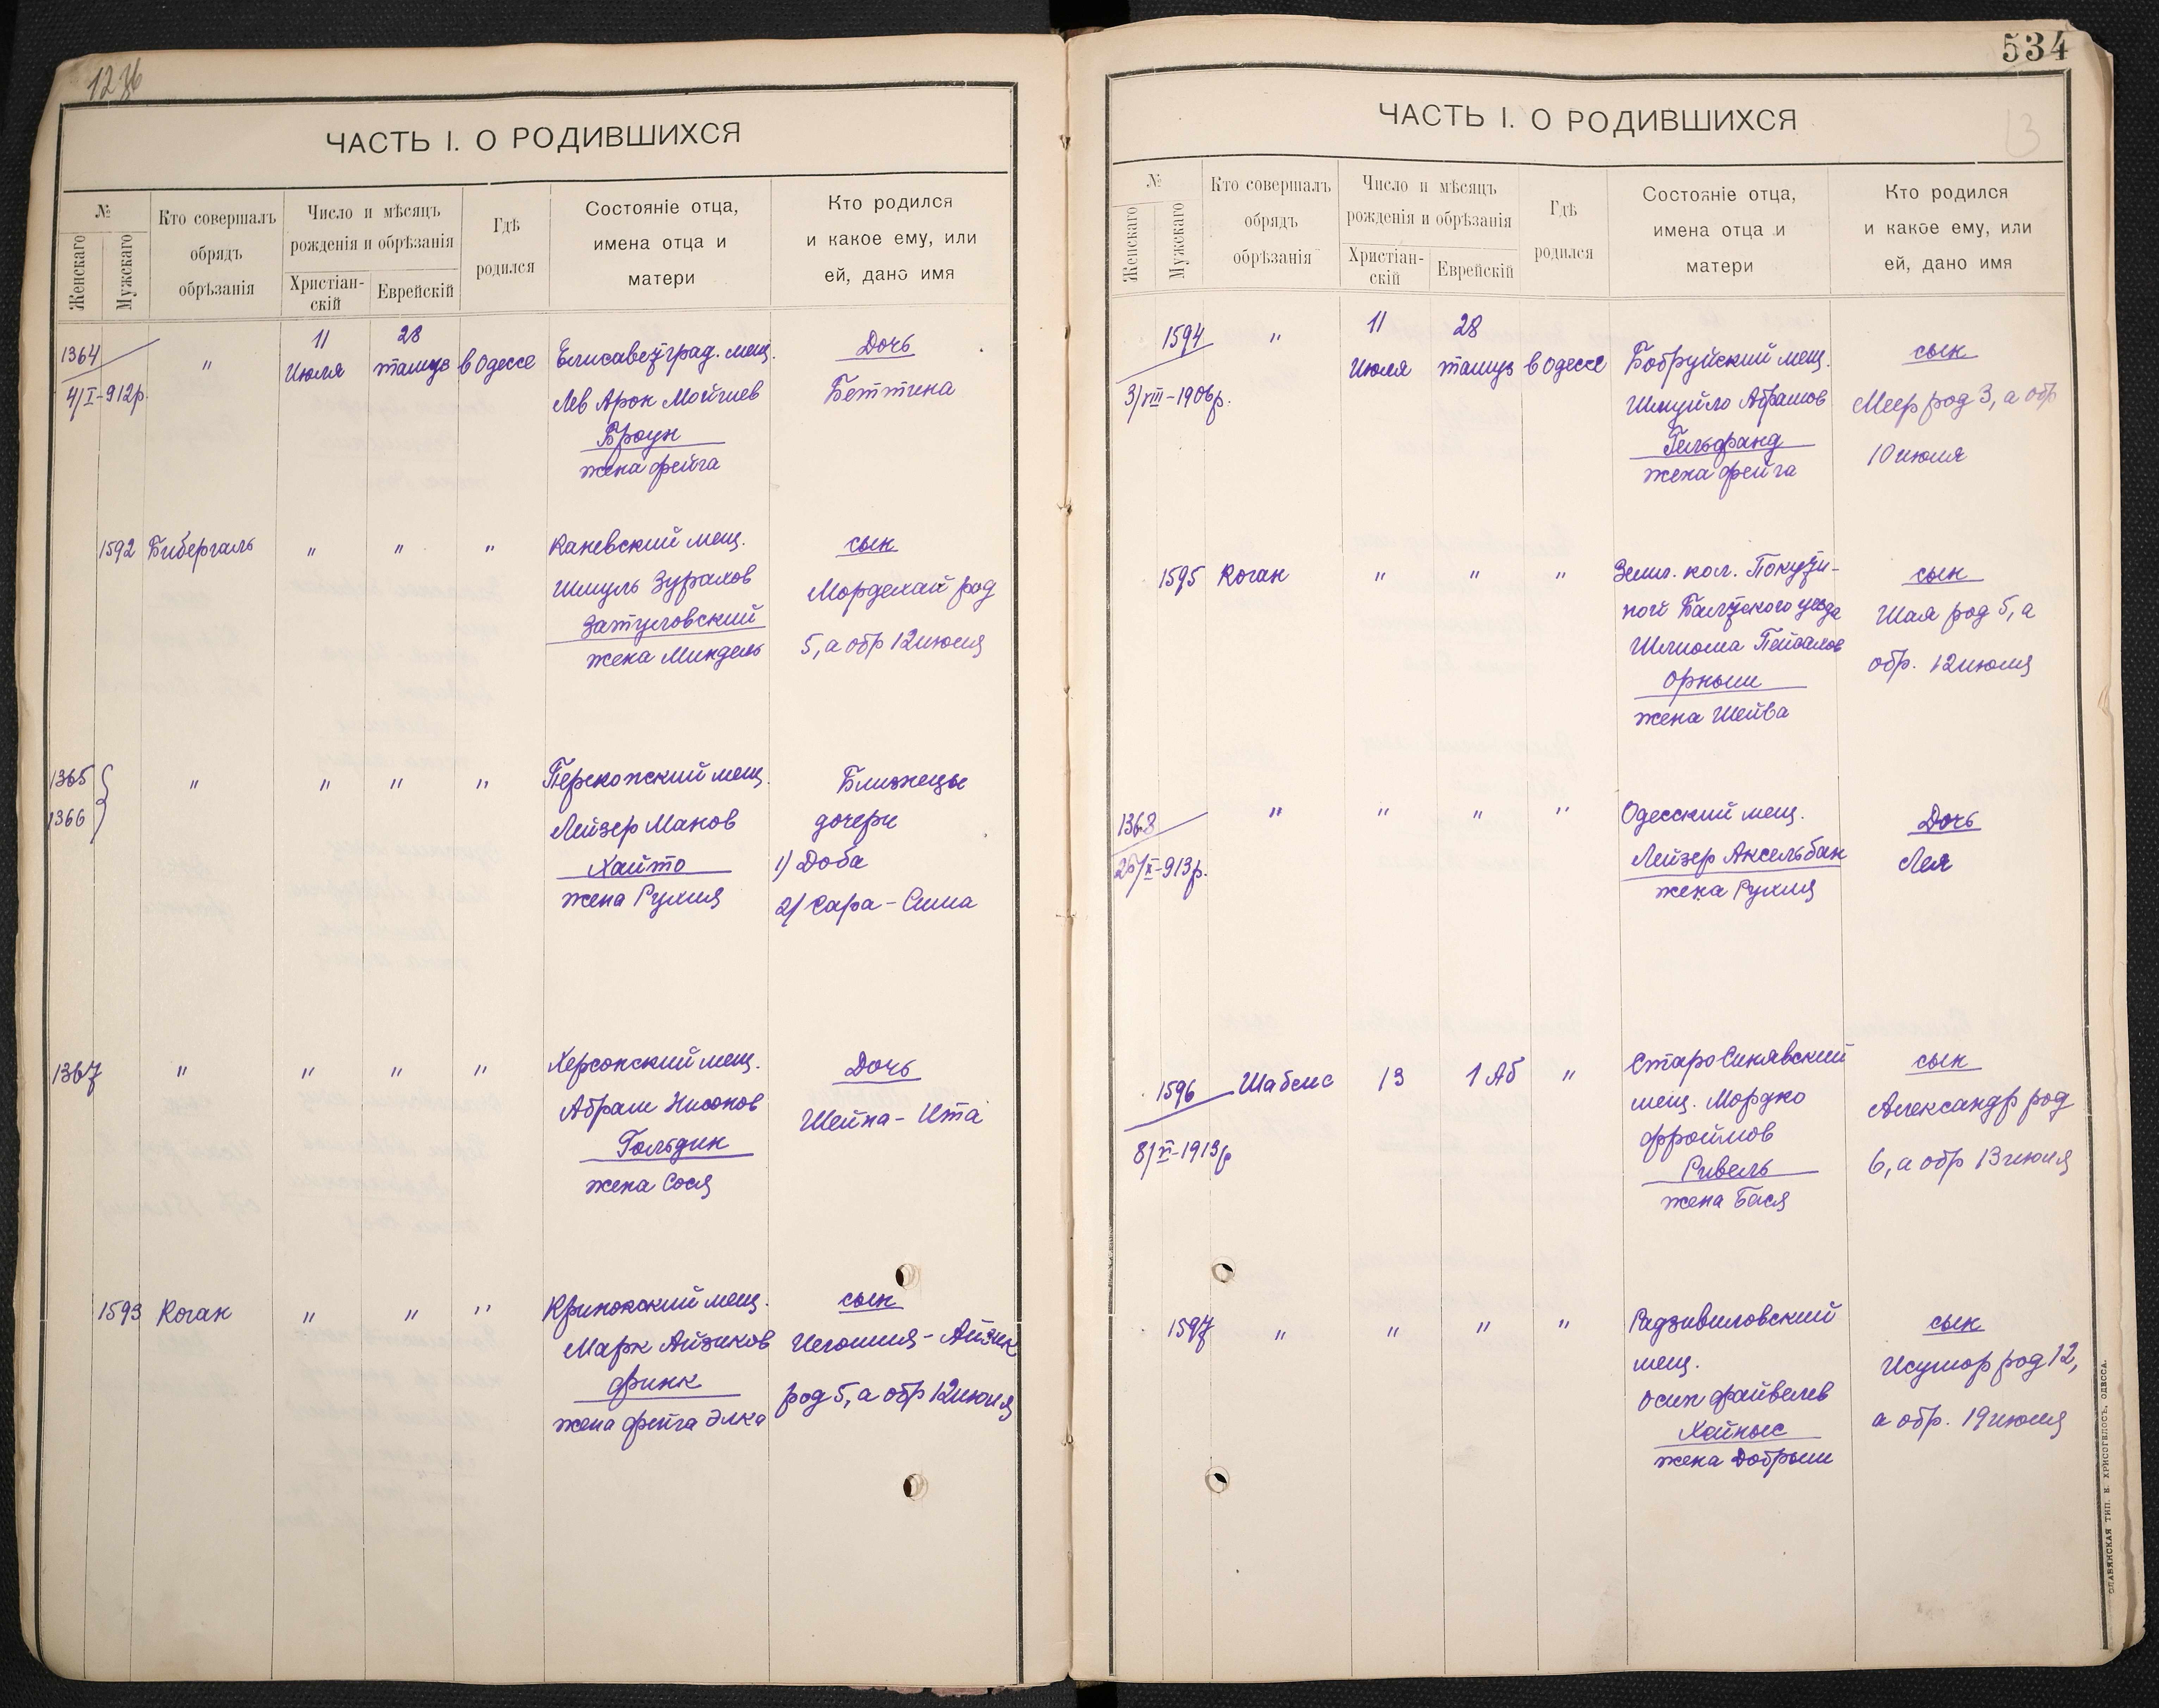 1236
ЧАСТЬ I. О РОДИВШИХСЯ
№
Женскаго
Мужскаго
Кто совершалъ
обрядъ
обрѣзанія
Число и мѣсяцъ
рожденія и обрѣзанія
Христіан-
скій
Еврейскій
Гдѣ
родился
Состояніе отца,
имена отца и
матери
Кто родился
и какое ему, или
ей, дано имя
1364
4/I-912р.
"
11
Июля
28
тамуз
в Одессе
Елисаветград. мещ.
Лев Арон Мойшев
Броун
жена Фейга
Дочь
Беттина
1592
Бибергаль
"
"
"
Каневский мещ.
Шмуль Зурахов
Затуловский
жена Миндель
сын
Мордехай род
5, а обр 12 июля
1365
1366
"
"
"
"
Перекопский мещ.
Лейзер Манов
Хаймо
жена Рухля
Близнецы
дочери
1) Доба
2) Сара-Сима
1367
"
"
"
"
Херсонский мещ.
Абрам Нисонов
Гольдин
жена Сося
Дочь
Шейна-Ита
1593
Коган
"
"
"
мещ.
Марк Айзиков
Финк
жена Фейга Элка
сын
Иегошия-Айзик
род 5, а обр 12 июля
534
13
ЧАСТЬ I. О РОДИВШИХСЯ
№
Женскаго
Мужскаго
Кто совершалъ
обрядъ
обрѣзанія
Число и мѣсяцъ
рожденія и обрѣзанія
Христіан-
скій
Еврейскій
Гдѣ
родился
Состояніе отца,
имена отца и
матери
Кто родился
и какое ему, или
ей, дано имя
1594
3/VIII-1906р.
"
11
Июля
28
тамуз
в Одессе
Бобруйский мещ.
Шмуйло Абрамов
Гельфанд
жена Фейга
сын
Меер род 3, а обр
10 июля
1595
Коган
"
"
"
Земл. кол. Покути-
ной Балтского уезда
Шлиома Пейсахов
Орныш
жена Шейва
сын
Шая род 5, а
обр. 12 июля
1368
26/X-913р.
"
"
"
"
Одесский мещ.
Лейзер Аксельбан
жена Рухля
Дочь
Лея
1596
8/VI-1913р
Шабсис
13
1 Аб
"
СтароСинявский
мещ. Мордко
Фроймов
Ривель
жена Бася
сын
Александр род
6, а обр 13 июля
1597
"
"
"
"
Радзивиловский
мещ.
Осип Файвелев
Хайныс
жена Добрыш
сын
Исумор род 12,
а обр. 19 июля
СЛАВЯНСКАЯ ТИП. Е. ХРИСОГЕЛОСЪ, ОДЕССА.